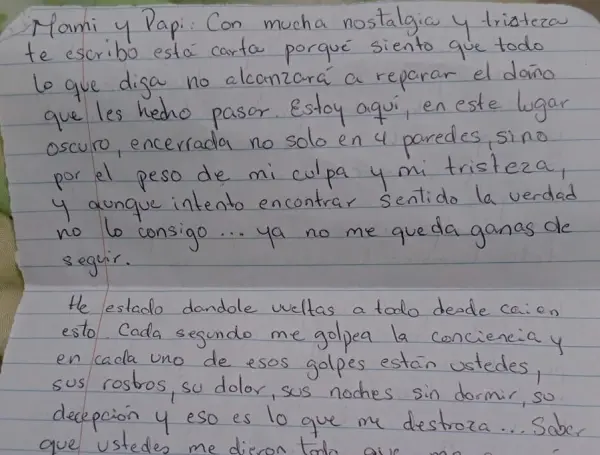 Mami y Papi: Con mucha nostalgia y tristeza
te escribo está carta porqué siento que todo
lo que diga no alcanzará a reparar el daño
que les hecho pasar. Estoy aquí, en este lugar
oscuro, encerrada no solo en 4 paredes, sino
por el peso de mi culpa y mi tristeza,
y aunque intento encontrar sentido la verdad
no lo consigo... ya no me queda ganas de
seguir.
He estado dandole vueltas a todo desde cai en
esto. Cada segundo me golpea la conciencia y
en cada uno de esos golpes están ustedes,
sus rostros, su dolor, sus noches sin dormir, su
decepción y eso es lo que me destroza... Saber
que ustedes me dieron todo